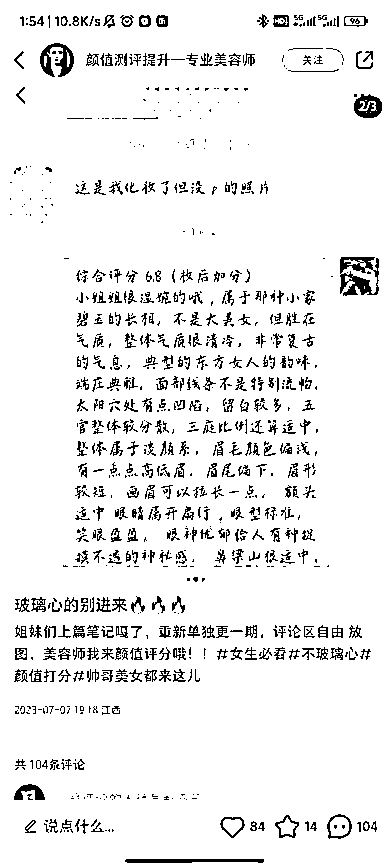 1:54 10.8K/s 5G 5G 96
颜值测评提升一专业美容师
关注
2/3
这是我化妆了但没p的照片
综合评分6.8（妆后加分）
小姐姐很温婉的哦，属于那种小家
碧玉的长相，不是大美女，但胜在
气质，整体气质很清冷，非常复古
的气息，典型的东方女人的韵味，
端庄典雅，面部线条不是特别流畅，
太阳穴处有点凹陷，留白较多，五
官整体较分散，三庭比例还算适中，
整体属于淡颜系，眉毛颜色偏浅，
有一点点高低眉，眉尾偏下，眉形
较短，画眉可以拉长一点，额头
适中 眼睛属开扇行，眼型标准，
笑眼盈盈，眼神忧郁给人有种捉
摸不透的神秘感，鼻梁山根适中，
玻璃心的别进来🔥🔥🔥
姐妹们上篇笔记嘎了，重新单独更一期，评论区自由 放
图，美容师我来颜值评分哦！！#女生必看#不玻璃心#
颜值打分#帅哥美女都来这儿
2023-07-07 19:18 江西
共 104条评论
说点什么... 84 14 104